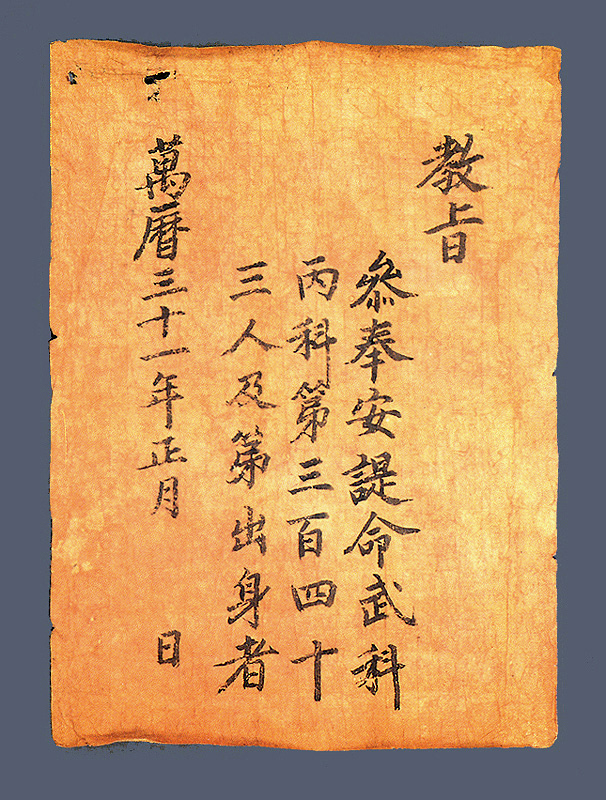 教旨
叅奉安諟命武科
丙科第三百四十
三人及第出身者
萬曆三十一年正月 日